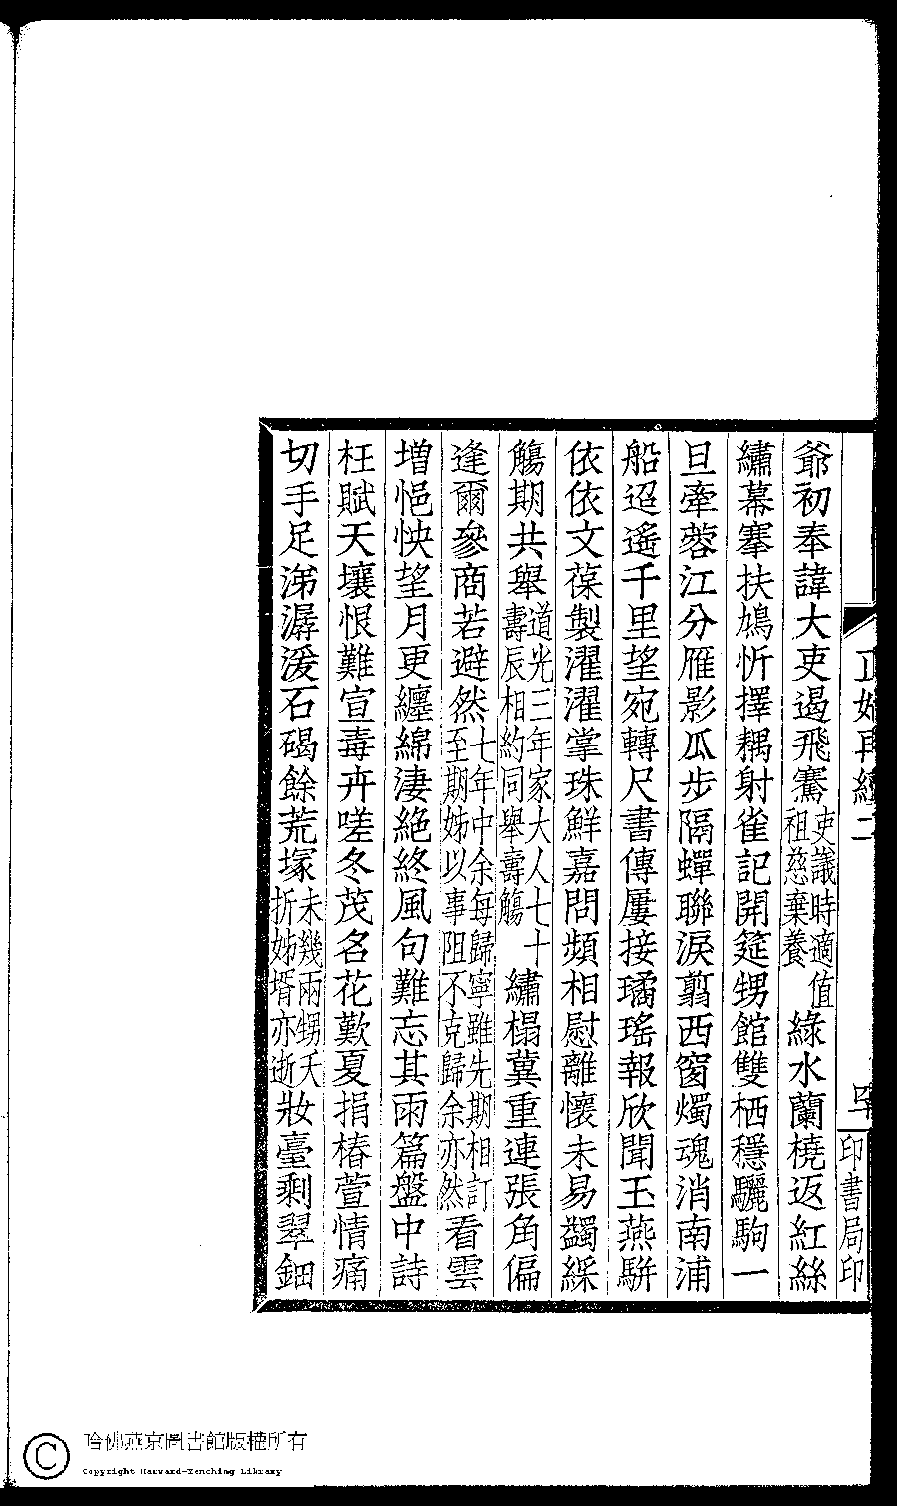 爺初奉諱大吏遏飛騫吏議時適值祖慈棄養綠水蘭橈返紅絲
繡幕搴扶鳩忻擇耦射雀記開筵甥館雙栖穩驪駒一
旦牽蓉江分雁影瓜步隔蟬聯淚翦西窗燭魂消南浦
船迢遙千里望宛轉尺書傳屢接璚瑤報欣聞玉燕駢
依依文葆製濯濯掌珠鮮嘉問頻相慰離懷未易蠲綵
觴期共舉道光三年家大人七十壽辰相約同舉壽觴繡榻冀重連張角偏
逢爾參商若避然七年中余每歸寧雖先期相訂至期姊以事阻不克歸余亦然看雲
增悒怏望月更纏綿淒絕終風句難忘其雨篇盤中詩
枉賦天壤恨難宣毒卉嗟冬茂名花歎夏捐椿萱情痛
切手足涕潺湲石碣餘荒塚未幾兩甥夭折姊壻亦逝妝臺剩翠鈿
正始再續二
印書局印
哈佛燕京圖書館版權所有
Copyright Harvard-Yenching Library